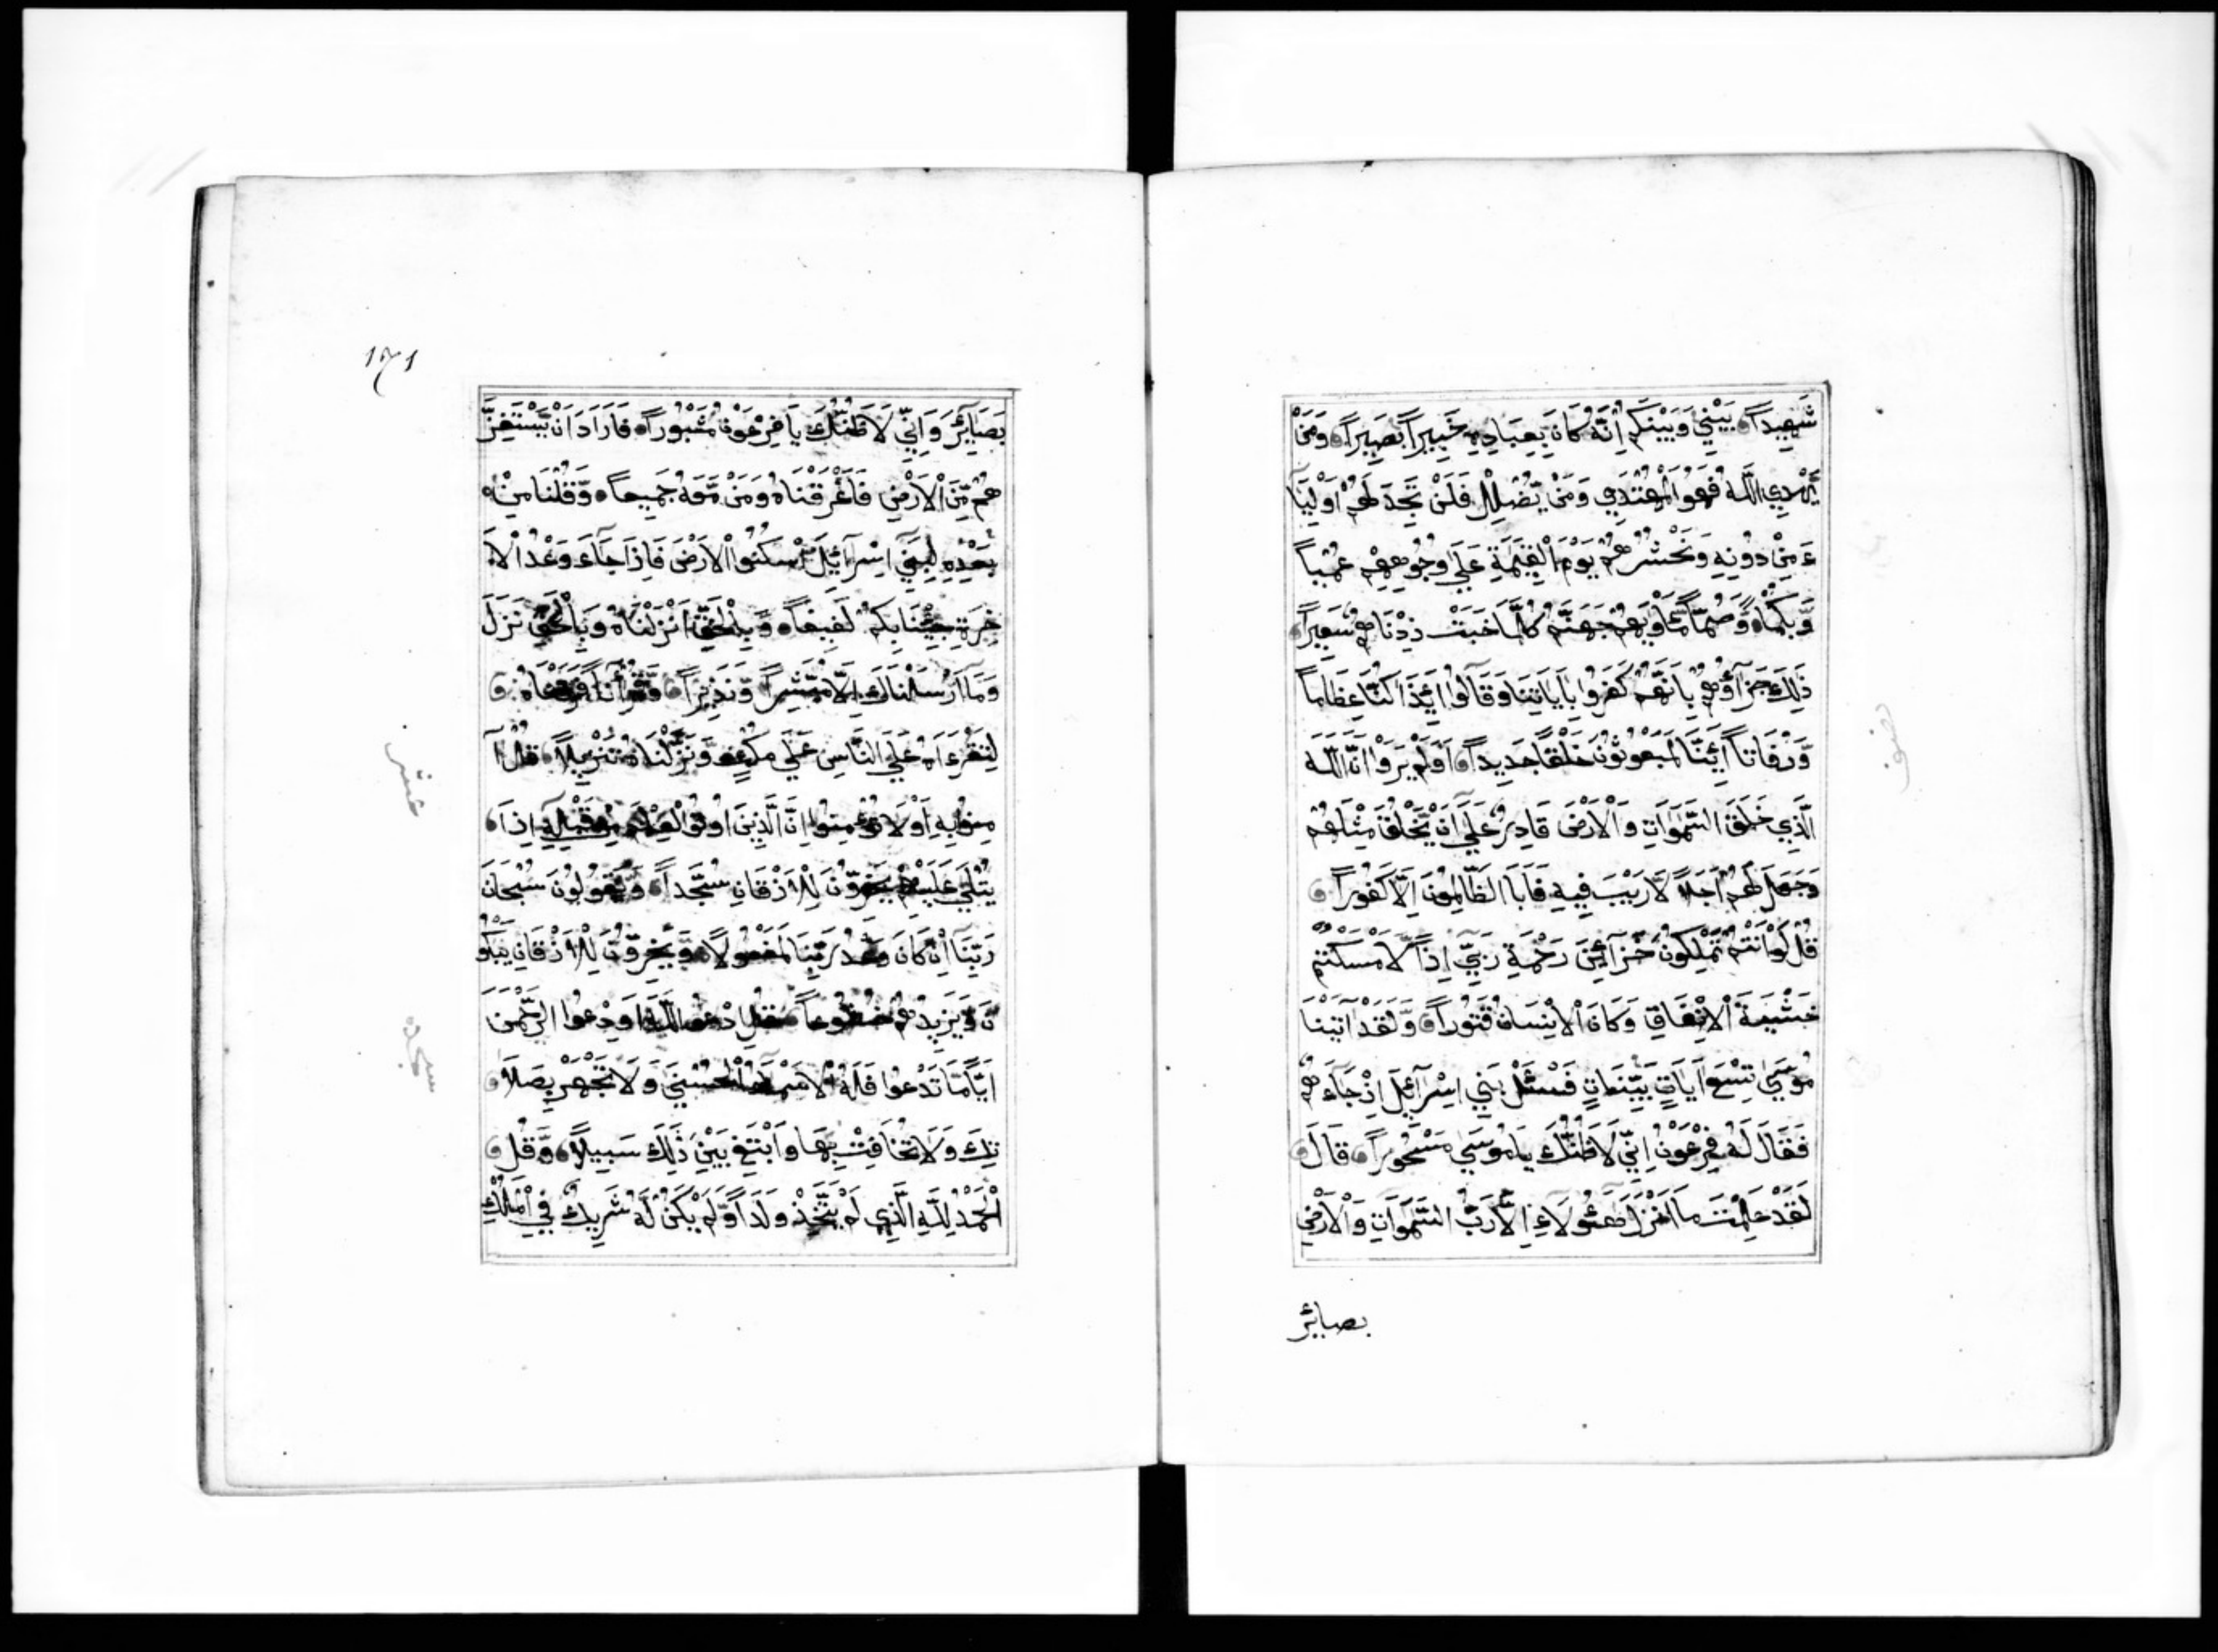 شَهِيداً بَيْنِي وَبَيْنَكُمْ اِنَّهُ كَانَ بِعِبَادِهِ خَبِيراً بَصِيراً وَمَنْ
يَّهْدِي اللَّهُ فَهُوَ الْمُهْتَدِي وَمَنْ يُّضْلِلْ فَلَنْ تَجِدَ لَهُمْ اَوْلِيَآ
ءَ مِنْ دُونِهِ وَنَحْشُرُهُمْ يَوْمَ الْقِيٰمَةِ عَلَي وُجُوهِهِمْ عُمْياً
وَّبُكْماً وَّصُمّاً مَّأْوٰيهُمْ جَهَنَّمُ كُلَّمَا خَبَتْ زِدْنَاهُمْ سَعِيراً
ذٰلِكَ جَزَآؤُهُمْ بِاَنَّهُمْ كَفَرُوا بِأَيَاتِنَا وَقَالُوا اَئِذَا كُنَّا عِظَاماً
وَّرُفَاتاً اَئِنَّا لَمَبْعُوثُونَ خَلْقاً جَدِيداً اَوَلَمْ يَرَوْا اَنَّ اللَّهَ
الَّذِي خَلَقَ السَّمٰوَاتِ وَالْاَرْضَ قَادِرٌ عَلَي اَنْ يَّخْلُقَ مِثْلَهُمْ
وَجَعَلَ لَهُمْ اَجَلاً لَّا رَيْبَ فِيهِ فَاَبَا الظَّالِمُونَ اِلَّا كُفُوراً
قُلْ لَوْ اَنْتُمْ تَمْلِكُونَ خَزَآئِنَ رَحْمَةِ رَبِّي اِذاً لَّاَمْسَكْتُمْ
خَشْيَةَ الْاِنْفَاقِ وَكَانَ الْاِنْسَانُ قَتُوراً وَّلَقَدْ اٰتَيْنَا
مُوسَي تِسْعَ اٰيَاتٍ بَيِّنَاتٍ فَسْئَلْ بَنِي اِسْرَآئِلَ اِذْ جَآءَهُمْ
فَقَالَ لَهُ فِرْعَوْنُ اِنِّي لَاَظُنُّكَ يَا مُوسَي مَسْحُوراً قَالَ
لَقَدْ عَلِمْتَ مَا اَنْزَلَ هٰٓؤُلَاءِ اِلَّا رَبُّ السَّمٰوَاتِ وَالْاَرْضِ
بصائر
١٧١
بَصَائِرَ وَاِنِّي لَاَظُنُّكَ يَا فِرْعَوْنُ مَثْبُوراً فَاَرَادَ اَنْ يَّسْتَفِزَّ
هُمْ مِّنَ الْاَرْضِ فَاَغْرَقْنَاهُ وَمَنْ مَّعَهُ جَمِيعاً وَّقُلْنَا مِنْ
بَعْدِهِ لِبَنِي اِسْرَآئِلَ اسْكُنُوا الْاَرْضَ فَاِذَا جَآءَ وَعْدُ الْاٰ
خِرَةِ جِئْنَا بِكُمْ لَفِيفاً وَّبِالْحَقِّ اَنْزَلْنَاهُ وَبِالْحَقِّ نَزَلَ
وَمَا اَرْسَلْنَاكَ اِلَّا مُبَشِّراً وَّنَذِيراً وَّقُرْأٰناً فَرَقْنَاهُ
لِتَقْرَءَاهُ عَلَي النَّاسِ عَلَي مُكْثٍ وَّنَزَّلْنَاهُ تَنْزِيلاً قُلْ اٰ
مِنُوا بِهِ اَوْ لَا تُؤْمِنُوا اِنَّ الَّذِينَ اُوتُوا الْعِلْمَ مِنْ قَبْلِهِ اِذَا
يُتْلَي عَلَيْهِمْ يَخِرُّونَ لِلْاَذْقَانِ سُجَّداً وَّيَقُولُونَ سُبْحَانَ
رَبِّنَا اِنْ كَانَ وَعْدُ رَبِّنَا لَمَفْعُولاً وَّيَخِرُّونَ لِلْاَذْقَانِ يَبْكُو
نَ وَيَزِيدُهُمْ خُشُوعاً قُلِ ادْعُوا اللَّهَ اَوِ ادْعُوا الرَّحْمٰنَ
اَيّاً مَّا تَدْعُوا فَلَهُ الْاَسْمَآءُ الْحُسْنَي وَلَا تَجْهَرْ بِصَلَا
تِكَ وَلَا تُخَافِتْ بِهَا وَابْتَغِ بَيْنَ ذٰلِكَ سَبِيلاً وَّقُلِ
الْحَمْدُ لِلَّهِ الَّذِي لَمْ يَتَّخِذْ وَلَداً وَّلَمْ يَكُنْ لَّهُ شَرِيكٌ فِي الْمُلْكِ
عشر
سجده